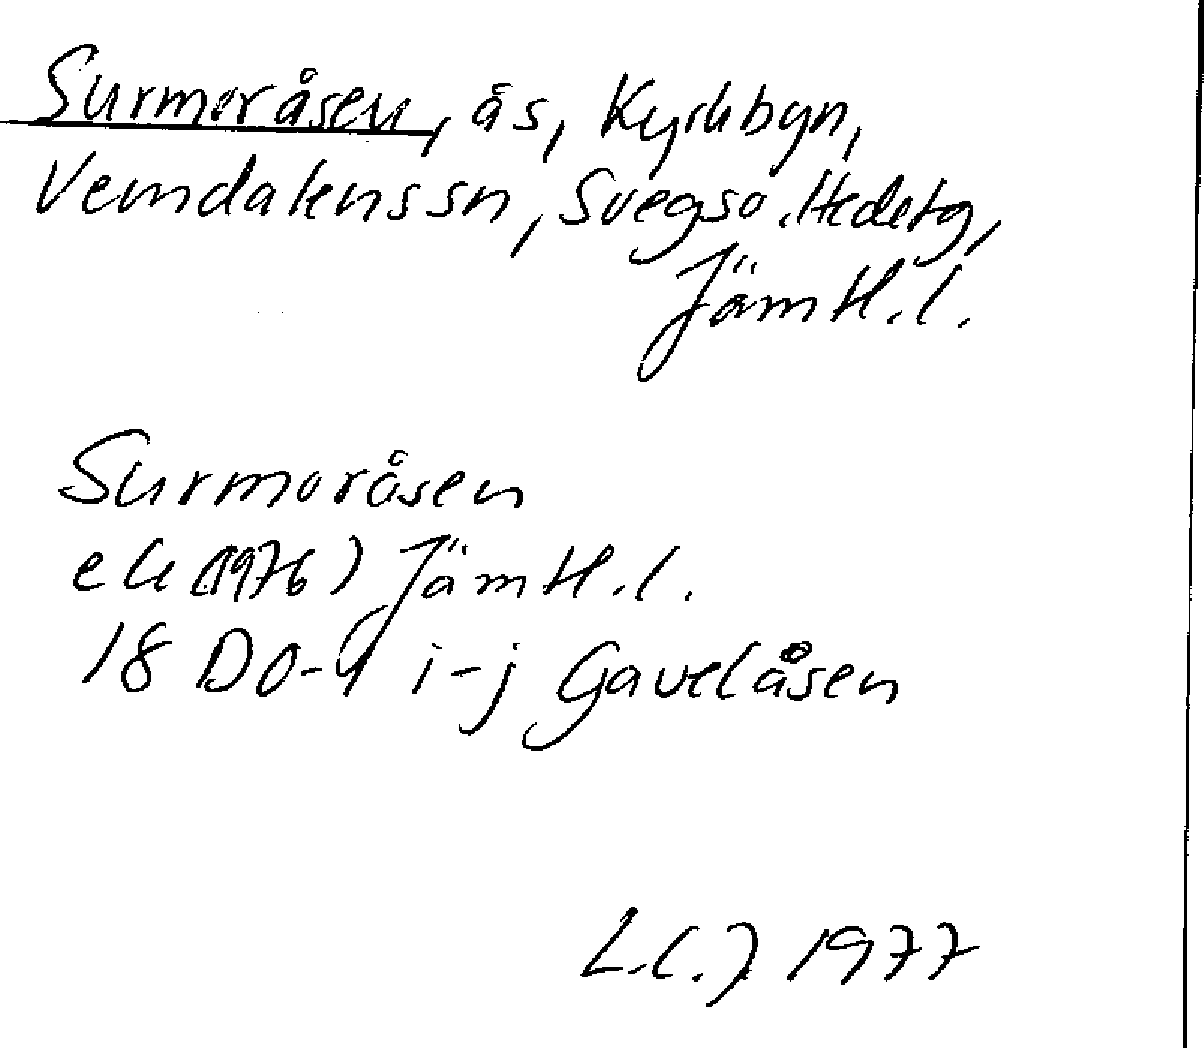 Surmoråsen, ås, Kyrkbyn,
Vemdalens sn, Svegs o. Hede tg,
Jämtl. l.
Surmoråsen
ek (1976) Jämtl. l.
18 D 0-1 i-j Gavelåsen
1977